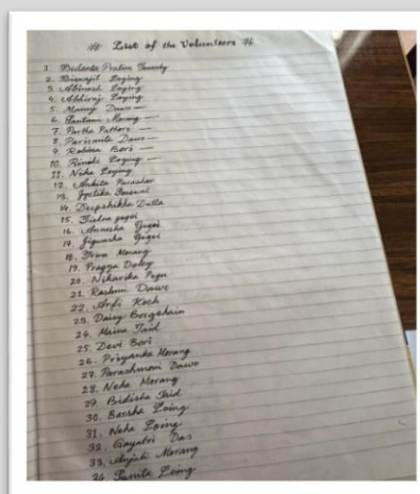 List of the Volunteers
1. Bedanta Pratim
2. Biswajit Loying
3. Abinash Loying
4. Abhiraj Loying
5. Mainaj Dawe
6. Morang
7. Partha Pathori
8. Parismita Dawe
9. Rabina Bori
10. Rinski Loying
11. Neha Loying
12. Ankita Parashar
13. Jyotika
14. Deepshikha Dutta
15. gogoi
16. Annesha Gogoi
17. Jigyasha Gogoi
18. Morang
19. Pragya Doley
20. Niharika Pegu
21. Rashmi Dawe
22. Arfi Koch
23. Daisy Borgohain
24. Maina Taid
25. Devi Bori
26. Priyanka Morang
27. Parashmoni Dawe
28. Neha Morang
29. Bidisha Taid
30. Barsha Loing
31. Neha Loing
32. Gayatri Das
33. Anjali Morang
34. Loing